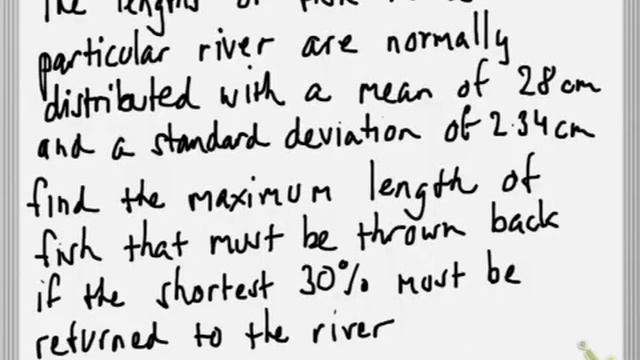 The lengths of fish
particular river are normally
distributed with a mean of 28cm
and a standard deviation of 2.34cm
find the maximum length of
fish that must be thrown back
if the shortest 30% must be
returned to the river